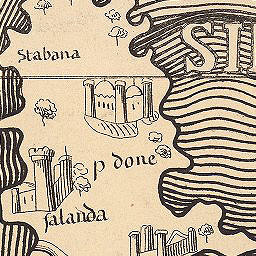 Stabana
SI
p done
falanda